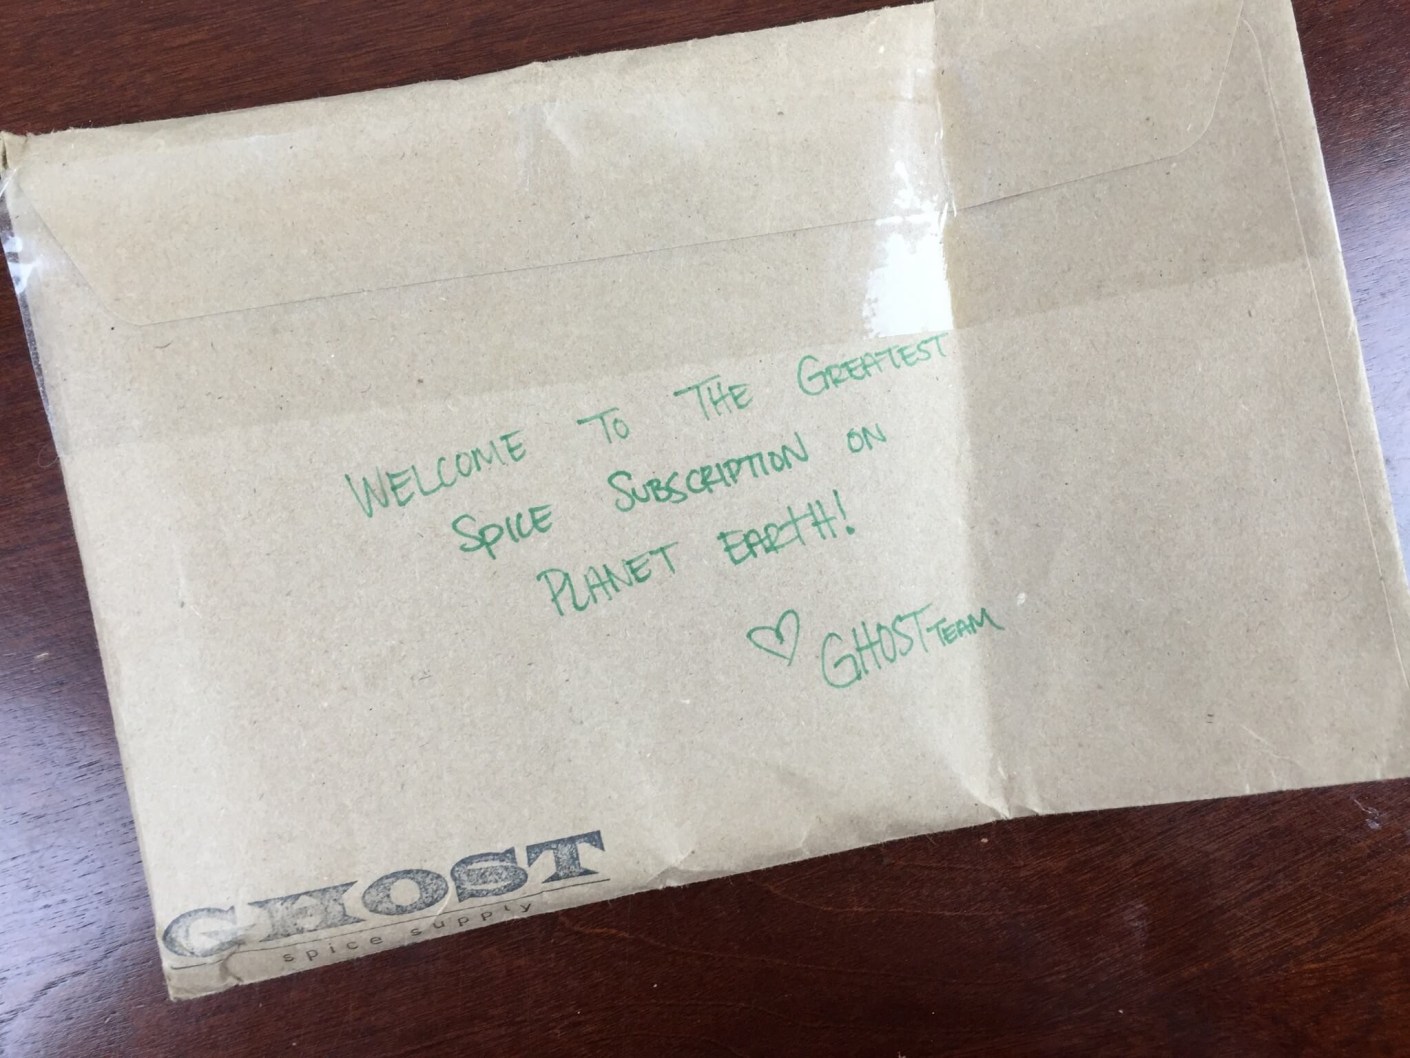 WELCOME TO THE GREATEST
SPICE SUBSCRIPTION ON
PLANET EARTH!
♡ GHOST TEAM
GHOST
spice supply